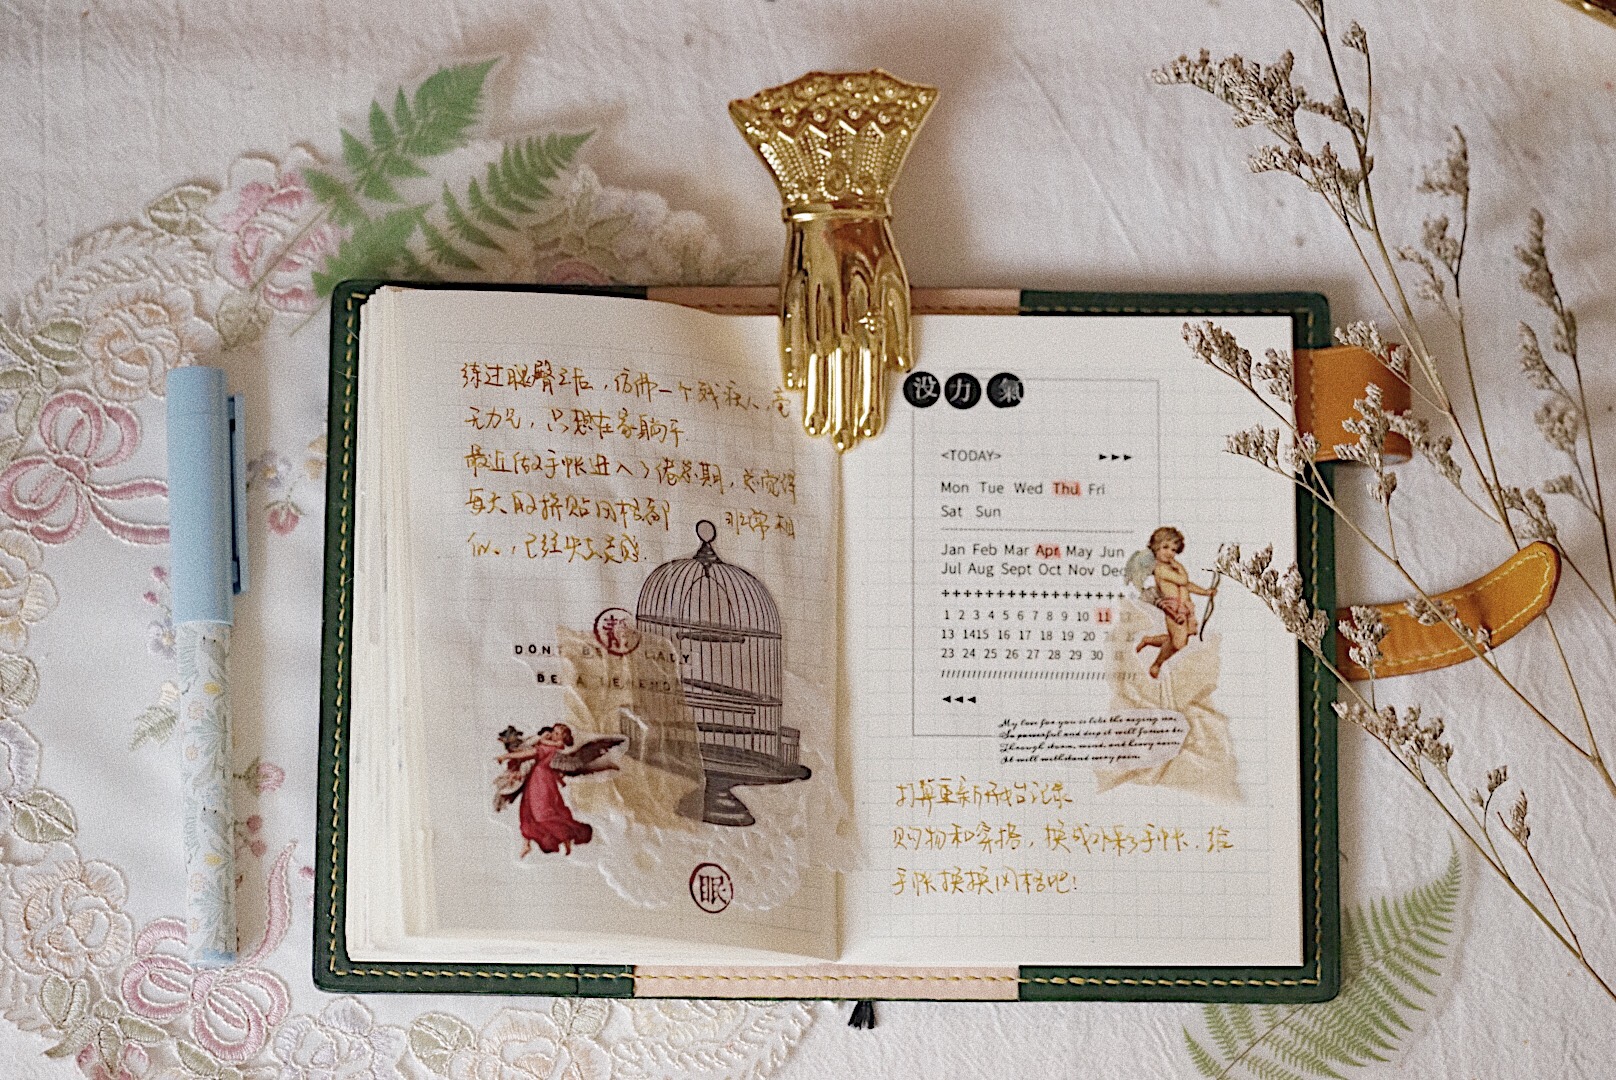 练过腿臀之后，仿佛一个残疾人，毫
无力气，只想在家躺平.
最近做手帐进入了倦怠期，总觉得
每天的拼贴风格都 非常相
似，已经失去灵感.
静
DON'T BE A LADY
BE A LEGEND
眠
没力氣
<TODAY> ►►►
Mon Tue Wed Thu Fri
Sat Sun
Jan Feb Mar Apr May Jun
Jul Aug Sept Oct Nov Dec
++++++++++++++++++
1 2 3 4 5 6 7 8 9 10 11
13 1415 16 17 18 19 20
23 24 25 26 27 28 29 30
◄◄◄
My love for you is like the raging sea,
So powerful and deep it will forever be.
Through storm, wind, and heavy rain,
It will withstand every pain.
打算重新开始记录
购物和穿搭，换成外彩手帐，给
手帐换换风格吧！